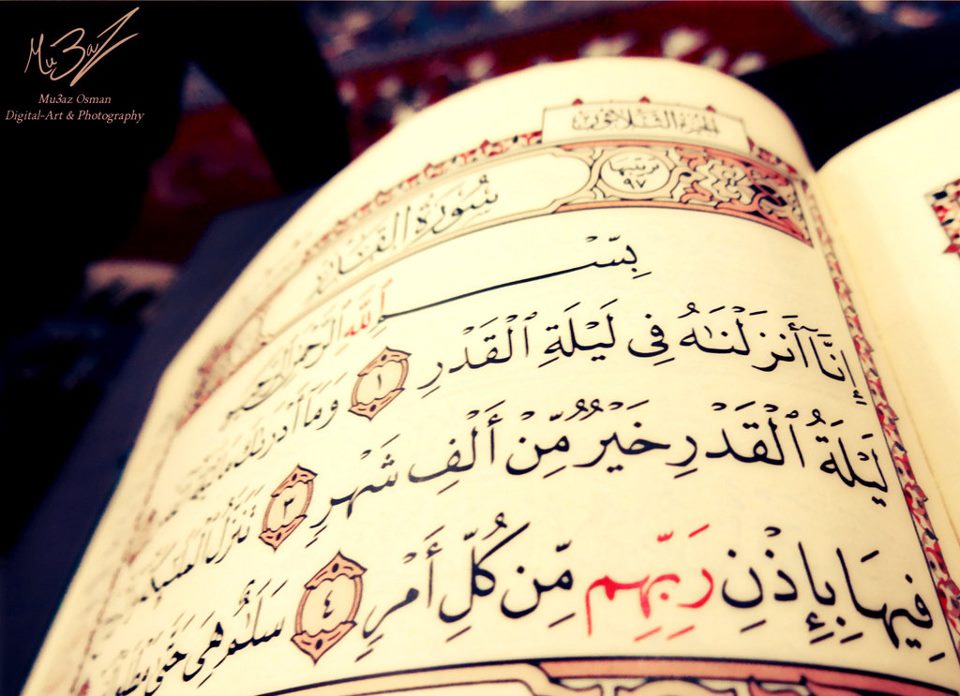 Mu3aZ
Mu3az Osman
Digital-Art & Photography
الجزء الثلاثون
ترتيبها
٩٧
سُورَةُ القَدْرِ
بِسْمِ ٱللَّهِ ٱلرَّحْمَٰنِ ٱلرَّحِيمِ
إِنَّآ أَنزَلْنَٰهُ فِى لَيْلَةِ ٱلْقَدْرِ ١ وَمَآ أَدْرَىٰكَ مَا
لَيْلَةُ ٱلْقَدْرِ خَيْرٌ مِّنْ أَلْفِ شَهْرٍ ٣ تَنَزَّلُ
فِيهَا بِإِذْنِ رَبِّهِم مِّن كُلِّ أَمْرٍ ٤ سَلَٰمٌ هِىَ حَتَّىٰ